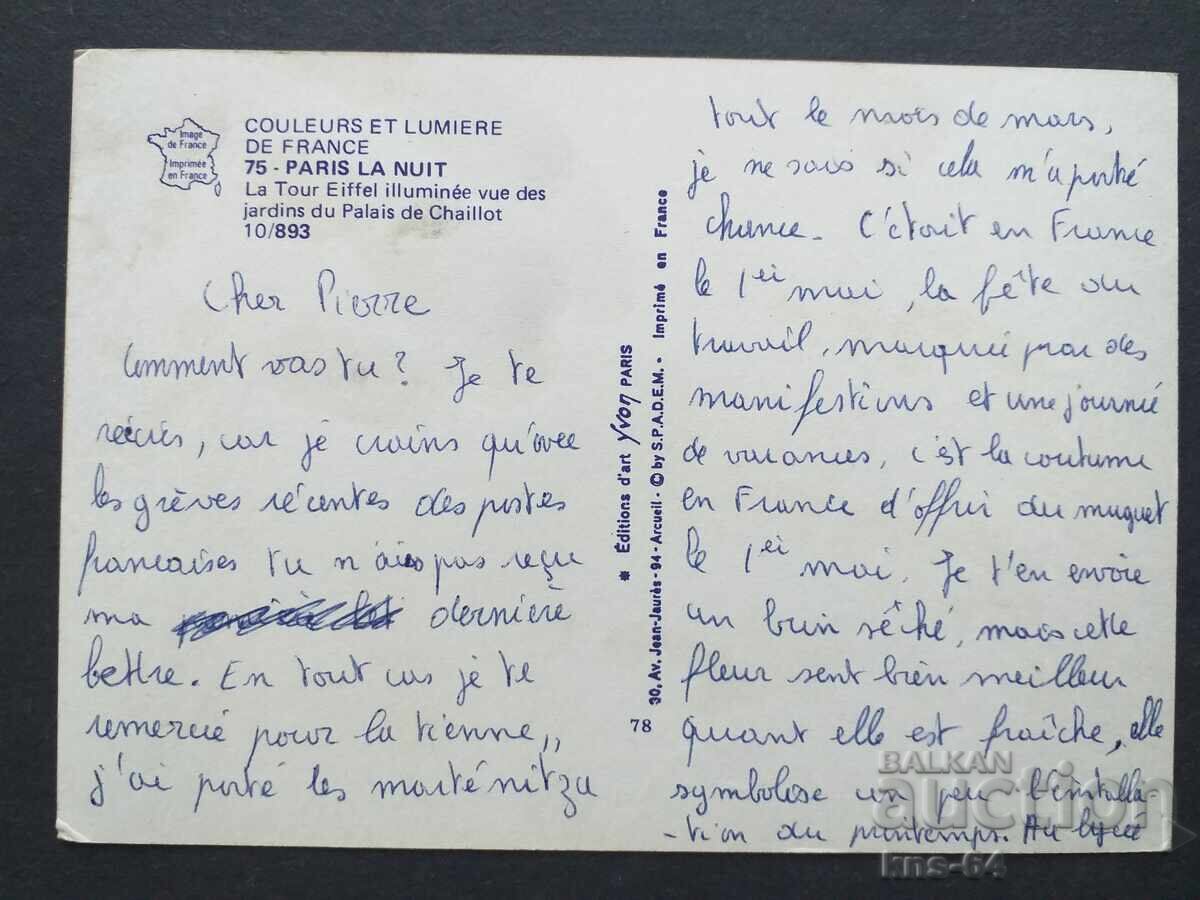 Image
de France
Imprimée
en France
COULEURS ET LUMIERE
DE FRANCE
75 - PARIS LA NUIT
La Tour Eiffel illuminée vue des
jardins du Palais de Chaillot
10/893
Cher Pierre
Comment vas tu? Je te
réécris, car je crains qu'avec
les grèves récentes des postes
francaises tu n'ais pas reçu
ma dernière
lettre. En tout cas je te
remercie pour la tienne,,
j'ai porté les marténitza
* Éditions d'art Yvon PARIS
30, Av. Jean-Jaurès - 94 - Arcueil - © by S.P.A.D.E.M. • Imprimé en France
78
tout le mois de mars,
je ne sais si cela m'a porté
chance. C'était en France
le 1er mai, la fête du
travail, marquée par des
manifestions et une journée
de vacances, c'est la coutume
en France d'offrir du muguet
le 1er mai. Je t'en envoie
un brin sêché, mais cette
fleur sent bien meilleur
quant elle est fraîche, elle
symbolise un peu l'installa
-tion du printemps. Au lycée
BALKAN
auction
kns-64